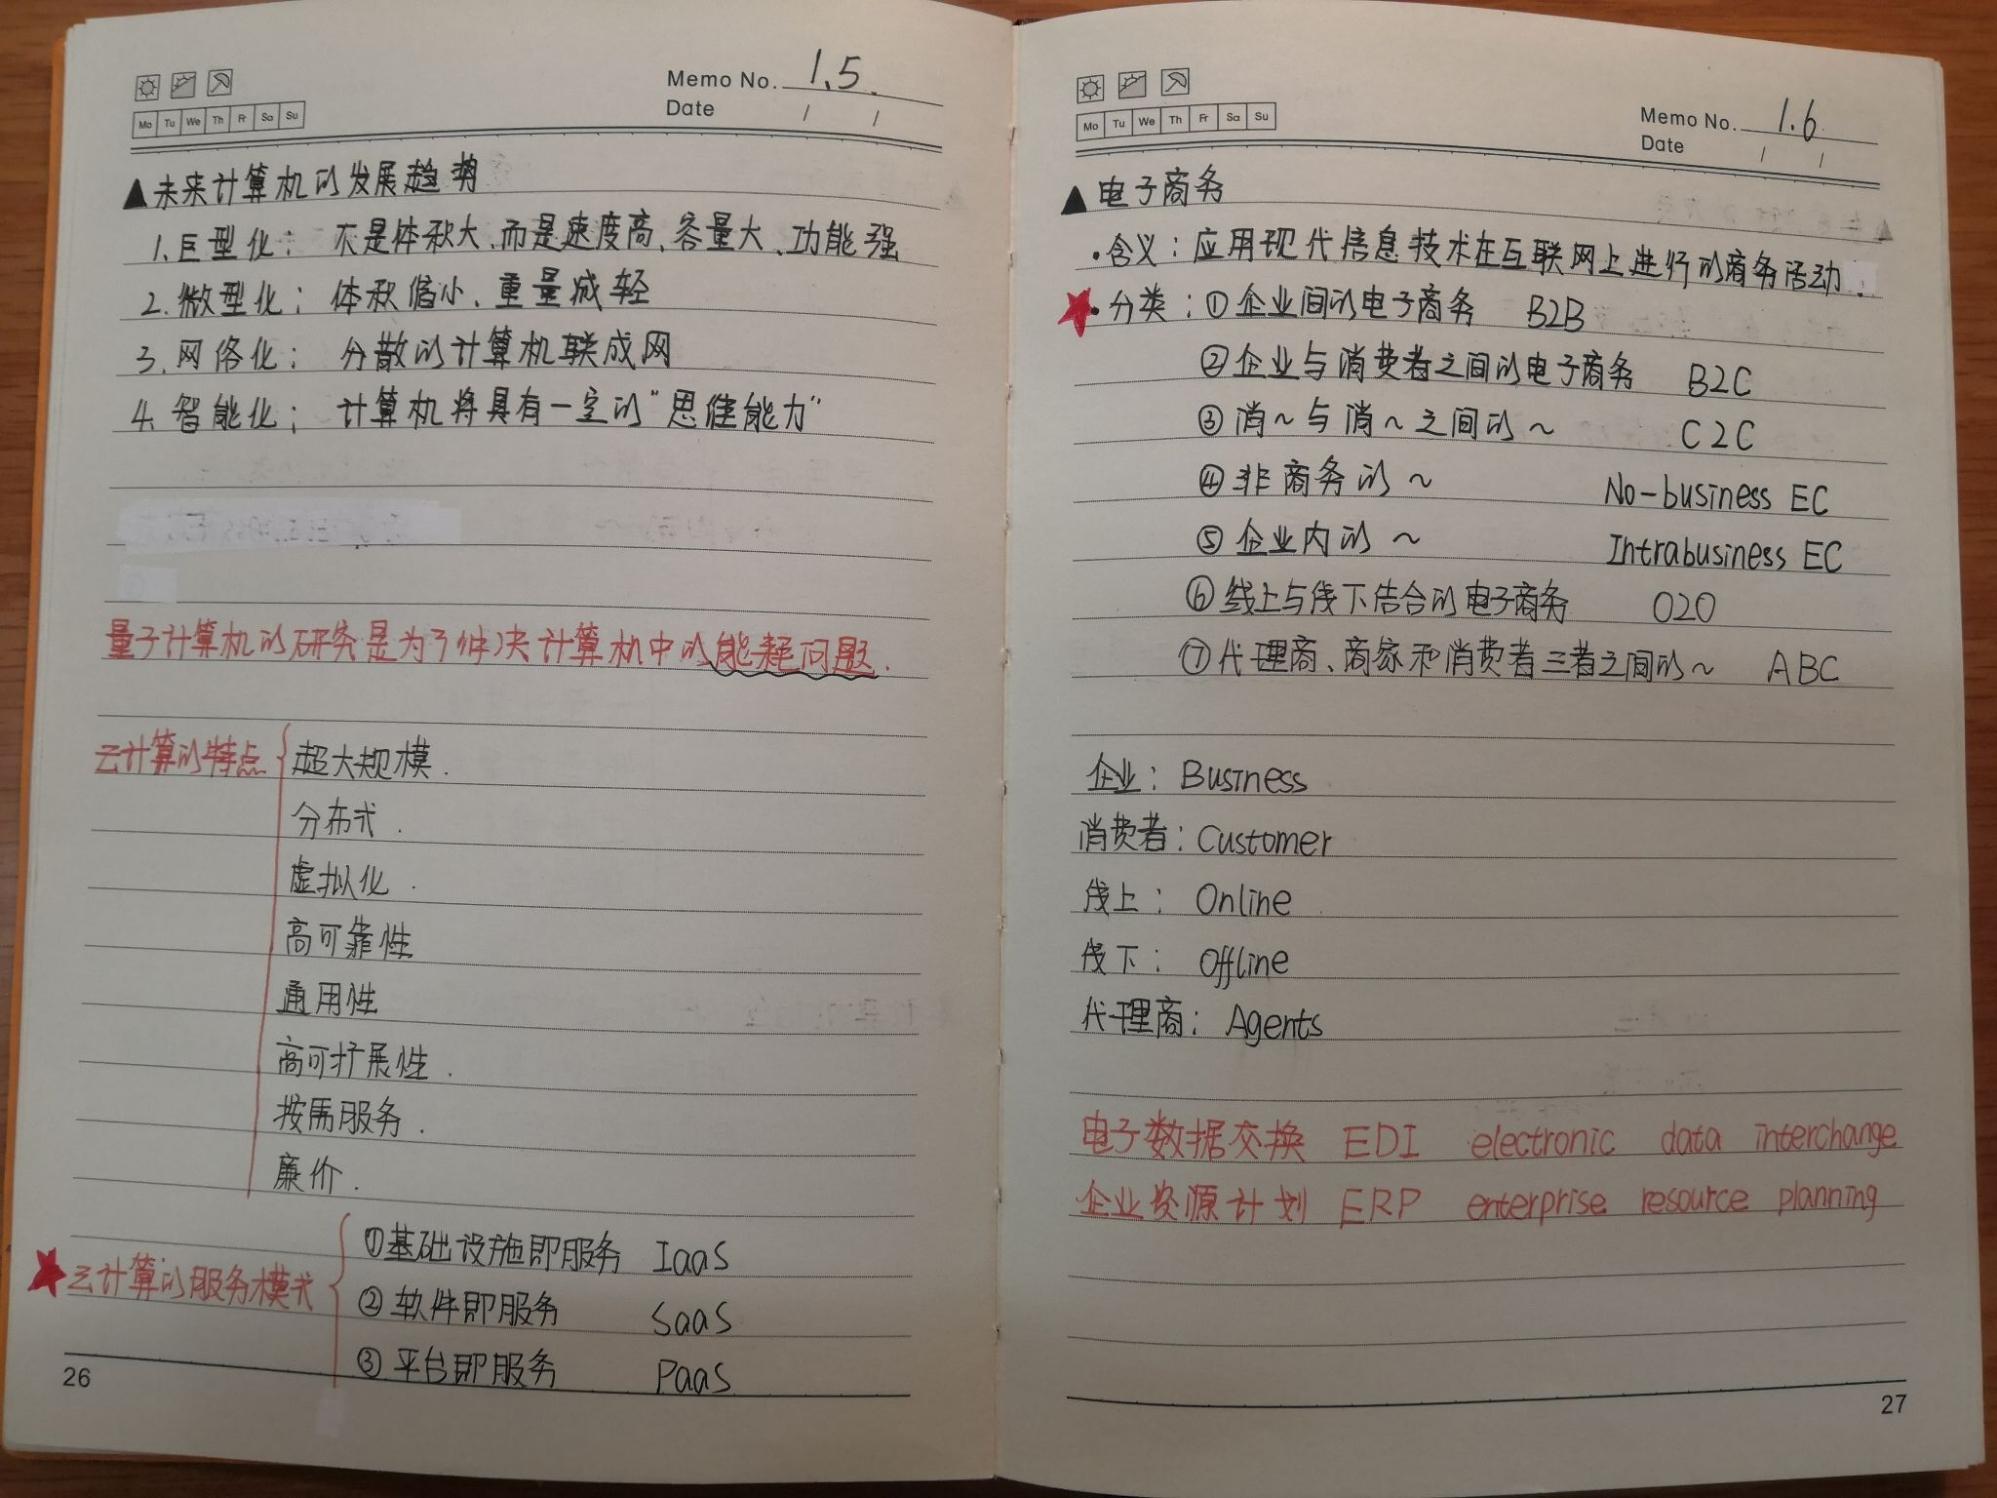 Memo No. 1.5
Date / /
Mo Tu We Th Fr Sa Su
▲未来计算机的发展趋势
1.巨型化： 不是体积大、而是速度高、容量大、功能强
2.微型化： 体积缩小、重量减轻
3.网络化： 分散的计算机联成网
4.智能化： 计算机将具有一定的“思维能力”
量子计算机的研究是为了解决计算机中的能耗问题.
云计算的特点 { 超大规模.
分布式.
虚拟化.
高可靠性
通用性
高可扩展性.
按需服务.
廉价.
★云计算的服务模式 { ①基础设施即服务 IaaS
②软件即服务 SaaS
③平台即服务 PaaS
26
Memo No. 1.6
Date / /
Mo Tu We Th Fr Sa Su
▲电子商务
•含义：应用现代信息技术在互联网上进行的商务活动.
★•分类：①企业间的电子商务 B2B
②企业与消费者之间的电子商务 B2C
③消~与消~之间的~ C2C
④非商务的~ No-business EC
⑤企业内的~ Intrabusiness EC
⑥线上与线下结合的电子商务 O2O
⑦代理商、商家和消费者三者之间的~ ABC
企业：Business
消费者：Customer
线上：Online
线下：Offline
代理商：Agents
电子数据交换 EDI electronic data interchange
企业资源计划 ERP enterprise resource planning
27